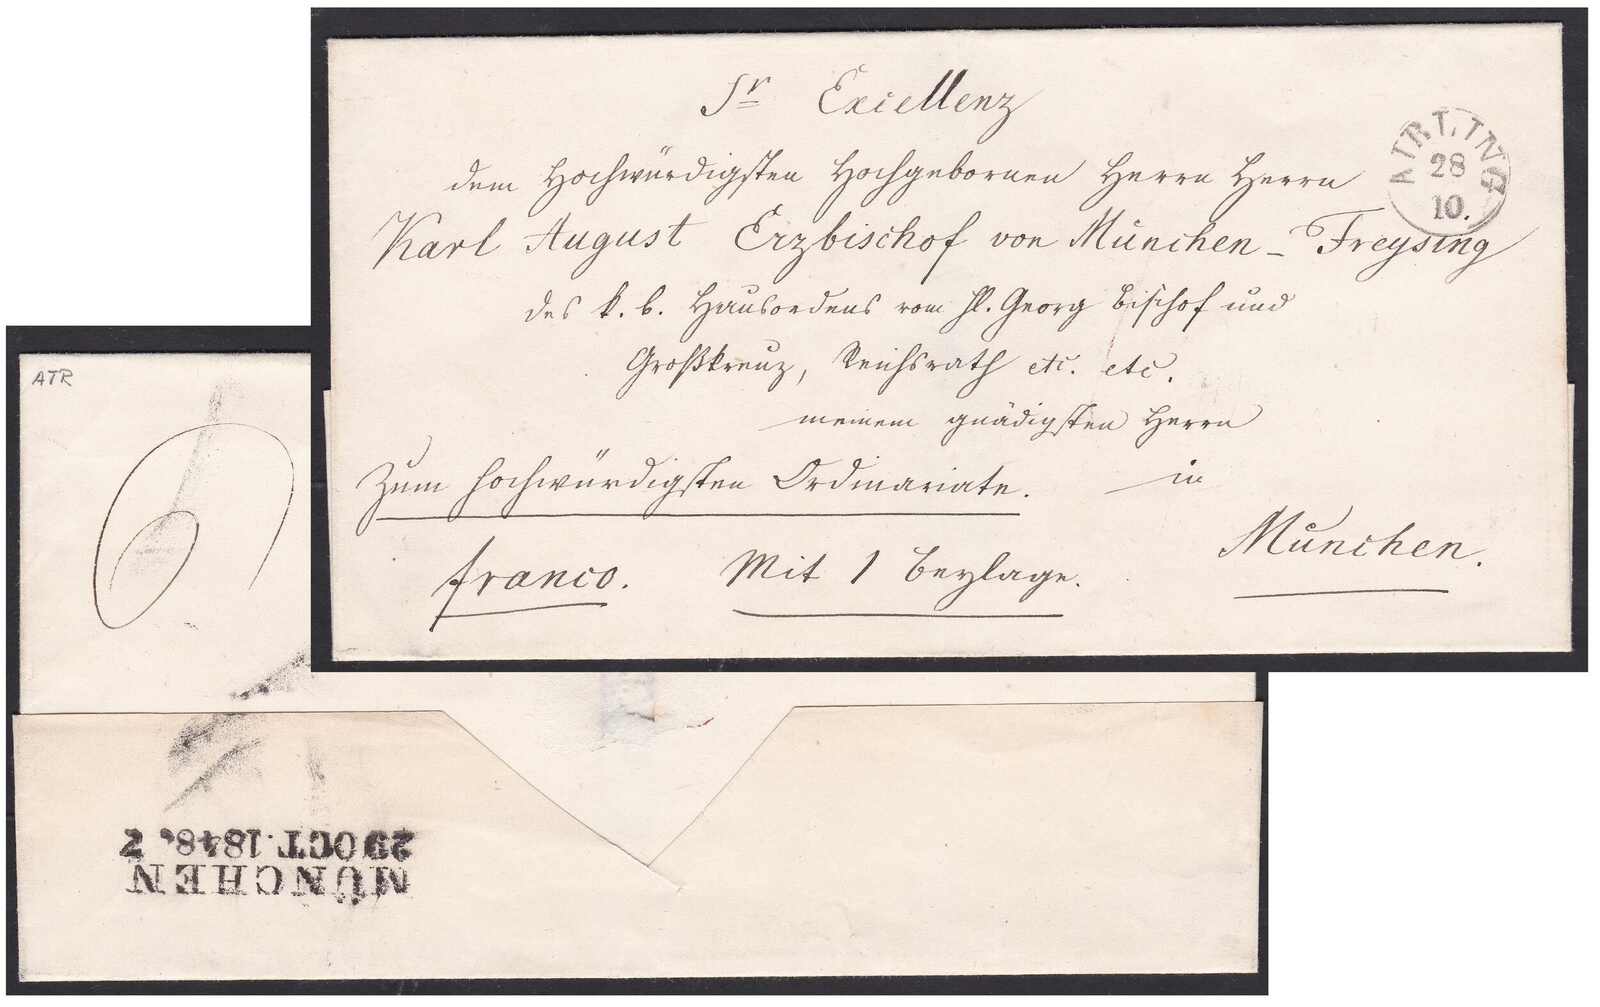 Sr Excellenz
dem Hochwürdigsten Hochgebornen Herrn Herrn
Karl August Erzbischof von München - Freysing
des k. b. Hausordens vom hl. Georg Bischof und
Großkreuz, Reichsrath etc. etc.
meinem gnädigsten Herrn
Zum hochwürdigsten Ordinariate. in
franco. Mit 1 Beylage. München.
AIBLING
28
10.
ATR
MÜNCHEN
29 OCT. 1848. 2